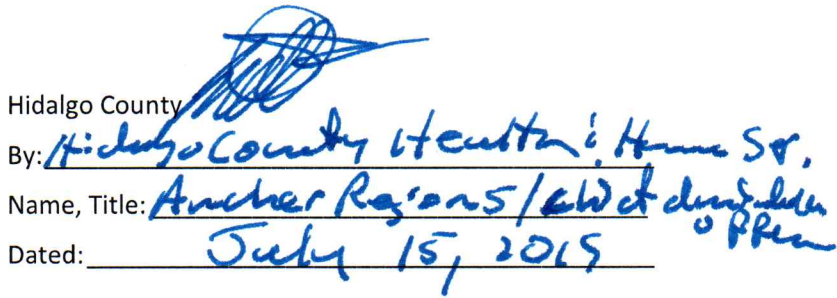 Hidalgo County
By: Hidalgo County Health & Human Sr.
Name, Title: Anchor Region 5 / chief
officer
Dated: July 15, 2015